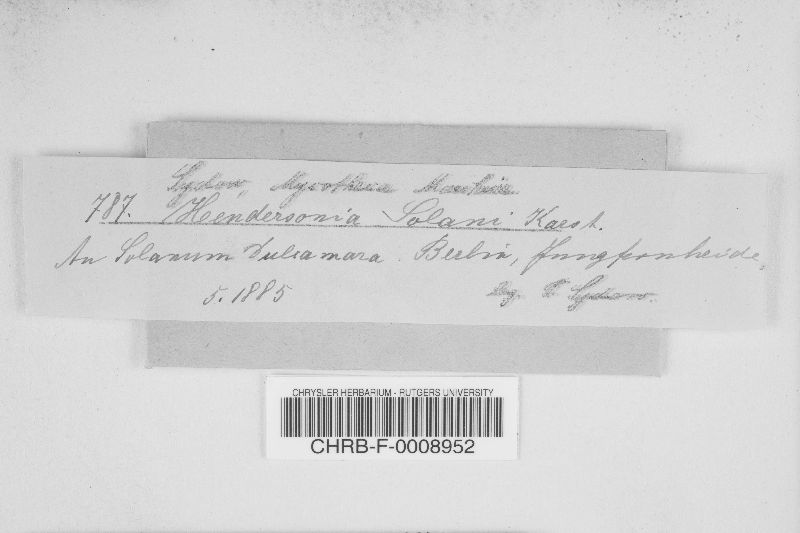 Sydow, Mycotheca Marchica.
787. Hendersonia Solani Karst.
An Solanum Dulcamara. Berlin, Jungfernheide,
5. 1885 leg. P. Sydow.
CHRYSLER HERBARIUM - RUTGERS UNIVERSITY
CHRB-F-0008952